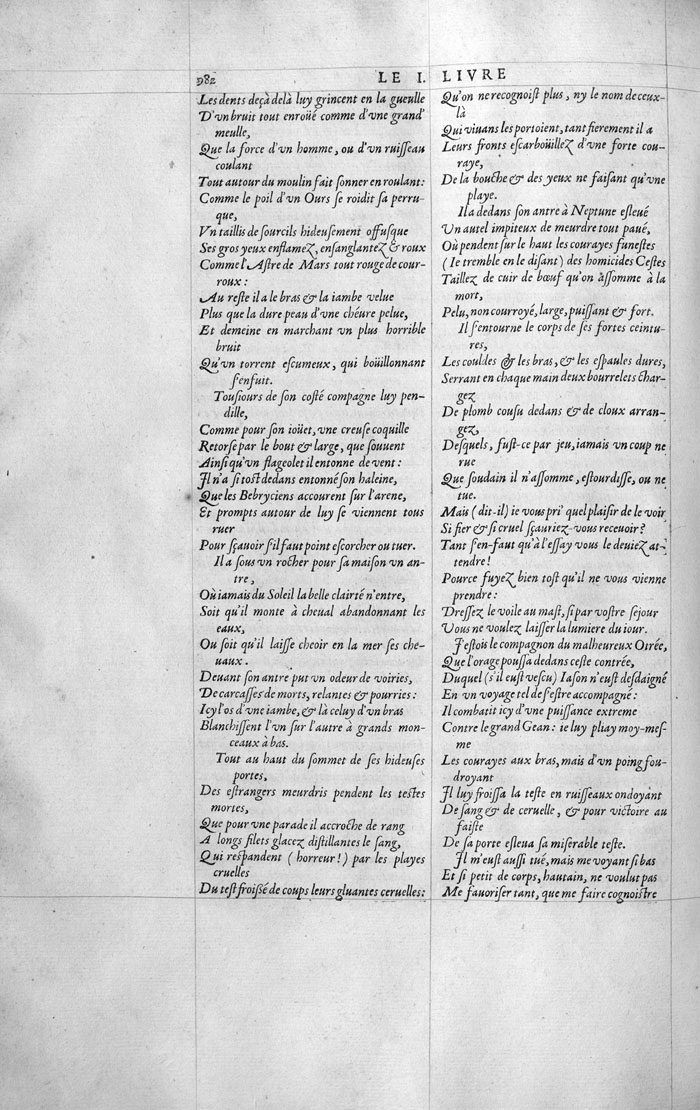 982 LE I. LIVRE
Les dents deçà delà luy grincent en la gueulle
D'vn bruit tout enroüé comme d'vne grand'
meulle,
Que la force d'vn homme, ou d'vn ruisseau
coulant
Tout autour du moulin fait sonner en roulant:
Comme le poil d'vn Ours se roidit sa perru-
que,
Vn taillis de sourcils hideusement offusque
Ses gros yeux enflamez, ensanglantez & roux
Comme l'Astre de Mars tout rouge de cour-
roux:
Au reste il a le bras & la iambe velue
Plus que la dure peau d'vne chéure pelue,
Et demeine en marchant vn plus horrible
bruit
Qu'vn torrent escumeux, qui boüillonnant
s'enfuit.
Tousiours de son costé compagne luy pen-
dille,
Comme pour son ioüet, vne creuse coquille
Retorse par le bout & large, que souuent
Ainsi qu'vn flageolet il entonne de vent:
Il n'a si tost dedans entonné son haleine,
Que les Bebryciens accourent sur l'arene,
Et prompts autour de luy se viennent tous
ruer
Pour sçauoir s'il faut point escorcher ou tuer.
Il a sous vn rocher pour sa maison vn an-
tre,
Où iamais du Soleil la belle clairté n'entre,
Soit qu'il monte à cheual abandonnant les
eaux,
Ou soit qu'il laisse cheoir en la mer ses che-
uaux.
Deuant son antre put vn odeur de voiries,
De carcasses de morts, relantes & pourries:
Icy l'os d'vne iambe, & là celuy d'vn bras
Blanchissent l'vn sur l'autre à grands mon-
ceaux à bas.
Tout au haut du sommet de ses hideuses
portes,
Des estrangers meurdris pendent les testes
mortes,
Que pour vne parade il accroche de rang
A longs filets glacez distillantes le sang,
Qui respandent (horreur!) par les playes
cruelles
Du test froissé de coups leurs gluantes ceruelles:
Qu'on ne recognoist plus, ny le nom de ceux-
là
Qui viuans les portoient, tant fierement il a
Leurs fronts escarboüillez d'vne forte cou-
raye,
De la bouche & des yeux ne faisant qu'vne
playe.
Il a dedans son antre à Neptune esleué
Vn autel impiteux de meurdre tout paué,
Où pendent sur le haut les courayes funestes
(Ie tremble en le disant) des homicides Cestes
Taillez de cuir de bœuf qu'on assomme à la
mort,
Pelu, non courroyé, large, puissant & fort.
Il s'entourne le corps de ses fortes ceintu-
res,
Les couldes & les bras, & les espaules dures,
Serrant en chaque main deux bourrelets char-
gez
De plomb cousu dedans & de cloux arran-
gez,
Desquels, fust-ce par jeu, iamais vn coup ne
rue
Que soudain il n'assomme, estourdisse, ou ne
tue.
Mais (dit-il) ie vous pri' quel plaisir de le voir
Si fier & si cruel sçauriez-vous receuoir?
Tant s'en-faut qu'à l'essay vous le deuiez at-
tendre!
Pource fuyez bien tost qu'il ne vous vienne
prendre:
Dressez le voile au mast, si par vostre sejour
Vous ne voulez laisser la lumiere du iour.
J'estois le compagnon du malheureux Otrée,
Que l'orage poussa dedans ceste contrée,
Duquel (s'il eust vescu) Iason n'eust desdaigné
En vn voyage tel de s'estre accompagné:
Il combatit icy d'vne puissance extreme
Contre le grand Gean: ie luy pliay moy-mes-
me
Les courayes aux bras, mais d'vn poing fou-
droyant
Il luy froissa la teste en ruisseaux ondoyant
De sang & de ceruelle, & pour victoire au
faiste
De sa porte esleua sa miserable teste.
Il m'eust aussi tué, mais me voyant si bas
Et si petit de corps, hautain, ne voulut pas
Me fauoriser tant, que me faire cognoistre